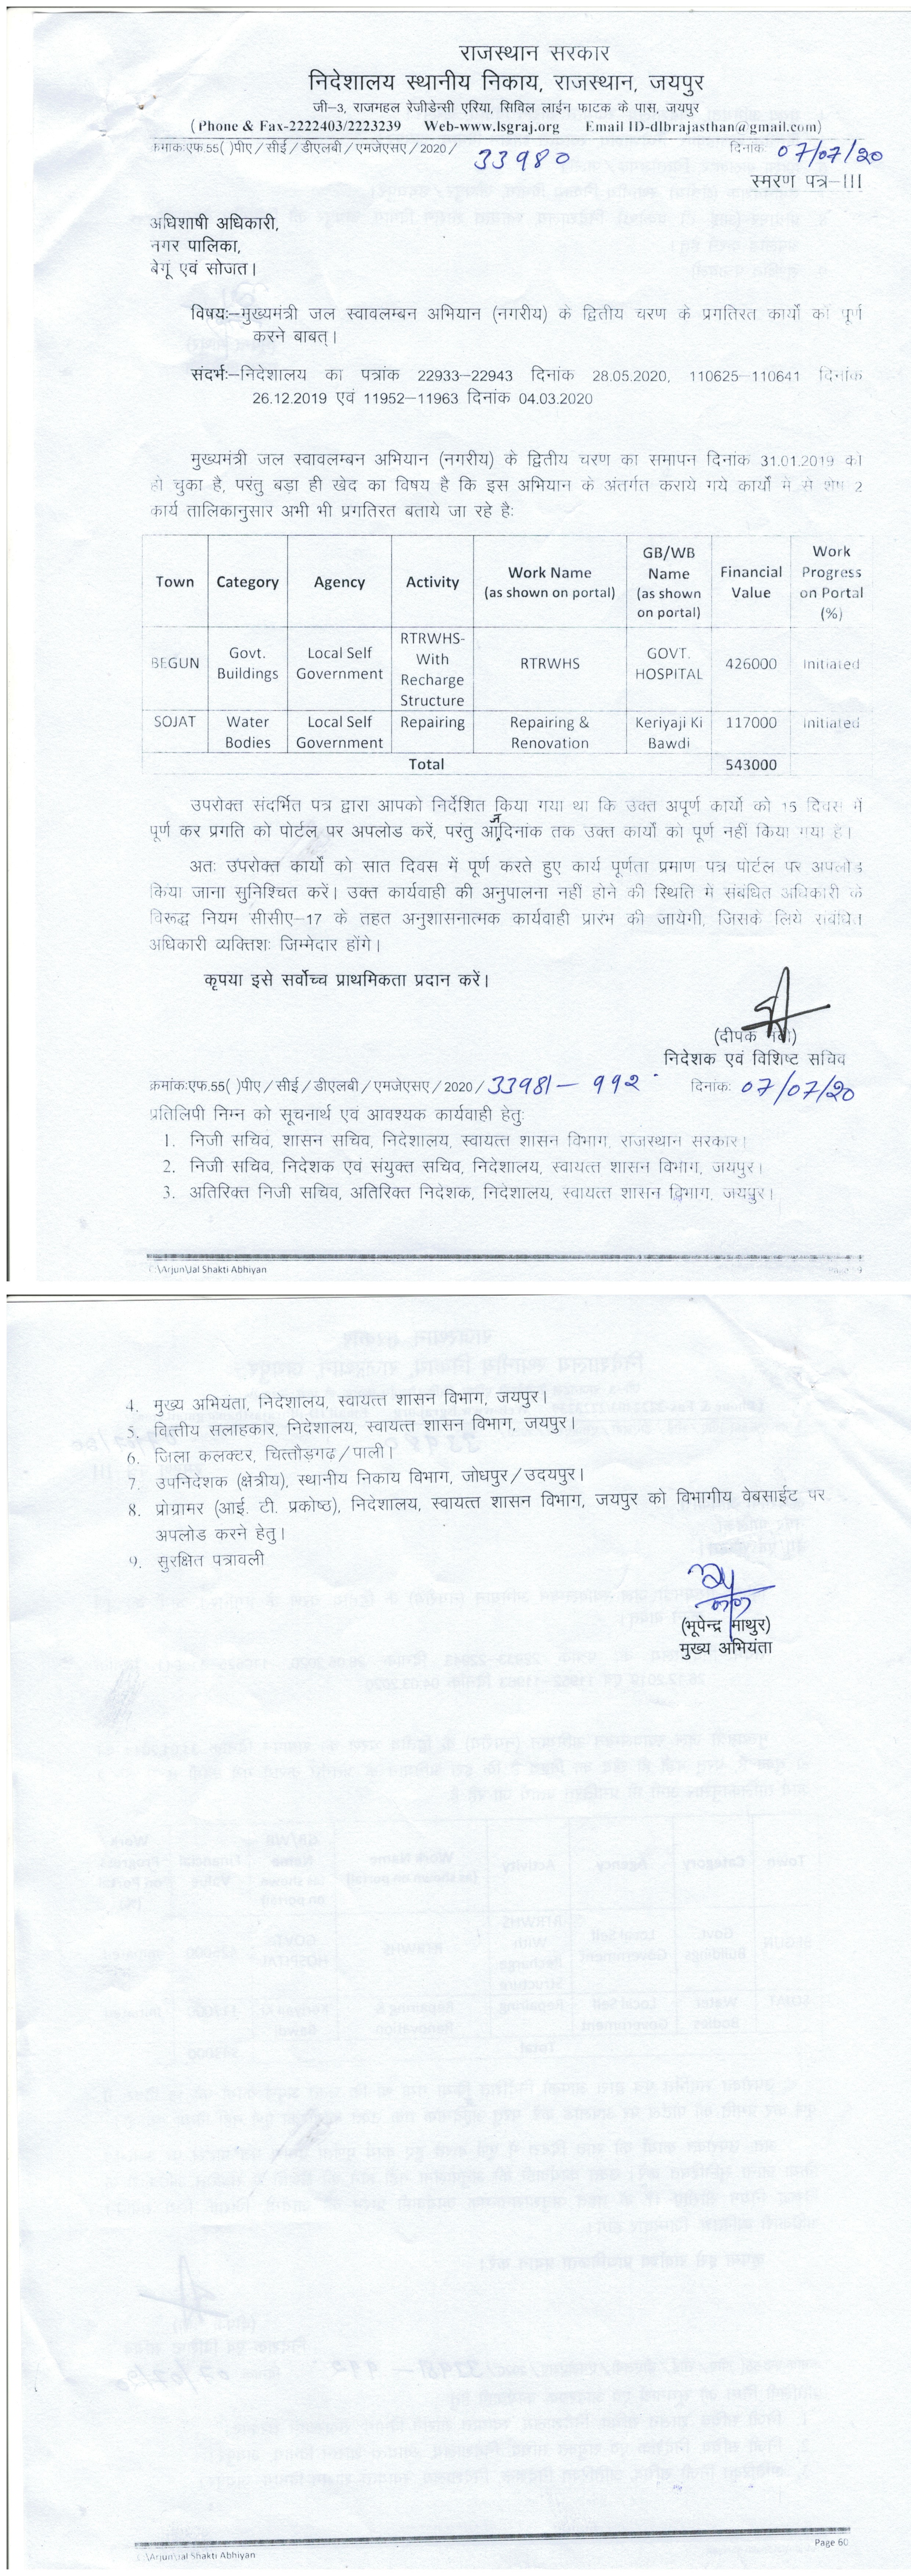 राजस्थान सरकार
निदेशालय स्थानीय निकाय, राजस्थान, जयपुर
जी–3, राजमहल रेजीडेन्सी एरिया, सिविल लाईन फाटक के पास, जयपुर
(Phone & Fax-2222403/2223239 Web-www.lsgraj.org Email ID-dlbrajasthan@gmail.com)
क्रमांक:एफ.55( )पीए/सीई/डीएलबी/एमजेएसए/2020/ 33980 दिनांक: 07/07/20
स्मरण पत्र–III
अधिशाषी अधिकारी,
नगर पालिका,
बेगूं एवं सोजत।
विषयः–मुख्यमंत्री जल स्वावलम्बन अभियान (नगरीय) के द्वितीय चरण के प्रगतिरत कार्यो को पूर्ण
करने बाबत्।
संदर्भः–निदेशालय का पत्रांक 22933–22943 दिनांक 28.05.2020, 110625–110641 दिनांक
26.12.2019 एवं 11952–11963 दिनांक 04.03.2020
मुख्यमंत्री जल स्वावलम्बन अभियान (नगरीय) के द्वितीय चरण का समापन दिनांक 31.01.2019 को
हो चुका है, परंतु बड़ा ही खेद का विषय है कि इस अभियान के अंतर्गत कराये गये कार्यो में से शेष 2
कार्य तालिकानुसार अभी भी प्रगतिरत बताये जा रहे है:
Town Category Agency Activity Work Name (as shown on portal) GB/WB Name (as shown on portal) Financial Value Work Progress on Portal (%)
BEGUN Govt. Buildings Local Self Government RTRWHS-With Recharge Structure RTRWHS GOVT. HOSPITAL 426000 Initiated
SOJAT Water Bodies Local Self Government Repairing Repairing & Renovation Keriyaji Ki Bawdi 117000 Initiated
Total 543000
उपरोक्त संदर्भित पत्र द्वारा आपको निर्देशित किया गया था कि उक्त अपूर्ण कार्यो को 15 दिवस में
पूर्ण कर प्रगति को पोर्टल पर अपलोड करें, परंतु आजदिनांक तक उक्त कार्यों को पूर्ण नहीं किया गया है।
अतः उपरोक्त कार्यों को सात दिवस में पूर्ण करते हुए कार्य पूर्णता प्रमाण पत्र पोर्टल पर अपलोड
किया जाना सुनिश्चित करें। उक्त कार्यवाही की अनुपालना नहीं होने की स्थिति में संबंधित अधिकारी के
विरूद्ध नियम सीसीए–17 के तहत अनुशासनात्मक कार्यवाही प्रारंभ की जायेगी, जिसके लिये संबंधित
अधिकारी व्यक्तिशः जिम्मेदार होंगे।
कृपया इसे सर्वोच्च प्राथमिकता प्रदान करें।
(दीपक नंदी)
निदेशक एवं विशिष्ट सचिव
क्रमांक:एफ.55( )पीए/सीई/डीएलबी/एमजेएसए/2020/ 33981 – 992 दिनांक: 07/07/20
प्रतिलिपी निम्न को सूचनार्थ एवं आवश्यक कार्यवाही हेतु:
1. निजी सचिव, शासन सचिव, निदेशालय, स्वायत्त शासन विभाग, राजस्थान सरकार।
2. निजी सचिव, निदेशक एवं संयुक्त सचिव, निदेशालय, स्वायत्त शासन विभाग, जयपुर।
3. अतिरिक्त निजी सचिव, अतिरिक्त निदेशक, निदेशालय, स्वायत्त शासन विभाग, जयपुर।
C:\Arjun\Jal Shakti Abhiyan
4. मुख्य अभियंता, निदेशालय, स्वायत्त शासन विभाग, जयपुर।
5. वित्तीय सलाहकार, निदेशालय, स्वायत्त शासन विभाग, जयपुर।
6. जिला कलक्टर, चित्तौड़गढ/पाली।
7. उपनिदेशक (क्षेत्रीय), स्थानीय निकाय विभाग, जोधपुर/उदयपुर।
8. प्रोग्रामर (आई. टी. प्रकोष्ठ), निदेशालय, स्वायत्त शासन विभाग, जयपुर को विभागीय वेबसाईट पर
अपलोड करने हेतु।
9. सुरक्षित पत्रावली
(भूपेन्द्र माथुर)
मुख्य अभियंता
C:\Arjun\Jal Shakti Abhiyan Page 60